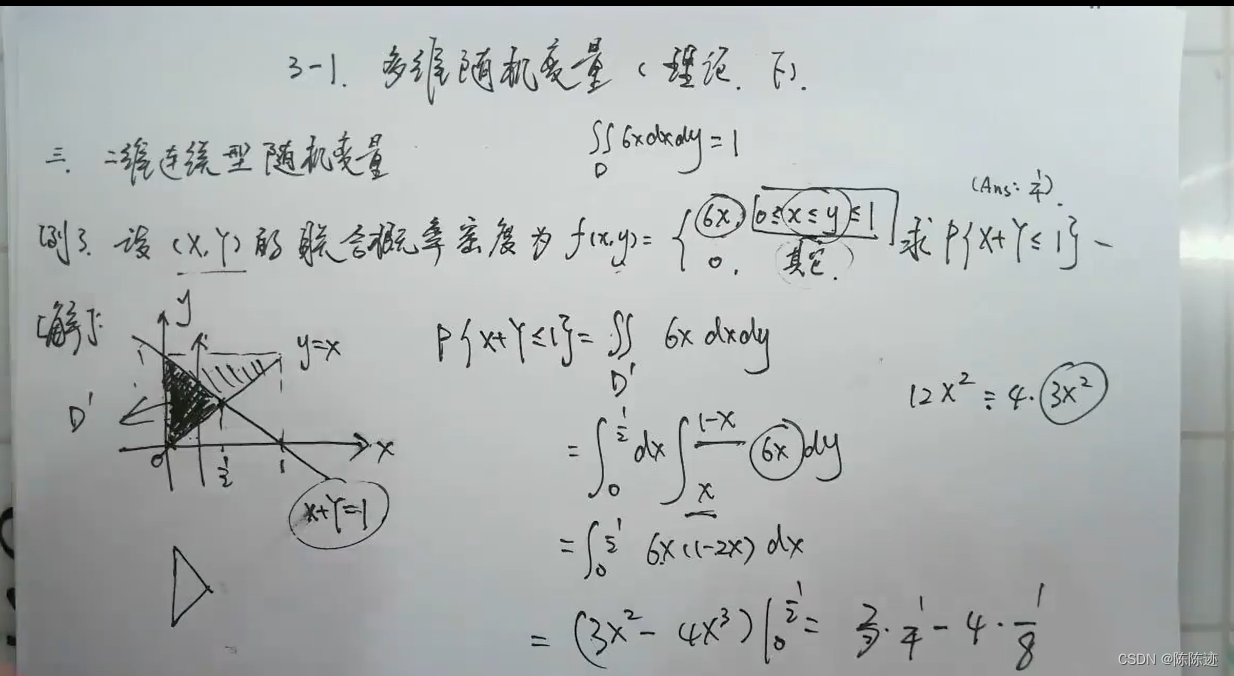 3-1. 多维随机变量(理论.下).
三. 二维连续型随机变量
∬ 6xdxdy=1
D
(Ans: 1/4).
[例]3. 设 (X,Y) 的联合概率密度为 f(x,y)= { 6x, 0≤x≤y≤1
0, 其它.
求 P{X+Y≤1}
[解]:
y
y=x
D'
0
1/2
1
x
x+Y=1
P{X+Y≤1}= ∬ 6x dxdy
D'
12x² = 4·3x²
= ∫₀^{1/2} dx ∫ₓ^{1-x} 6x dy
= ∫₀^{1/2} 6x(1-2x) dx
= (3x² - 4x³) |₀^{1/2} = 3·1/4 - 4·1/8
CSDN @陈陈迹